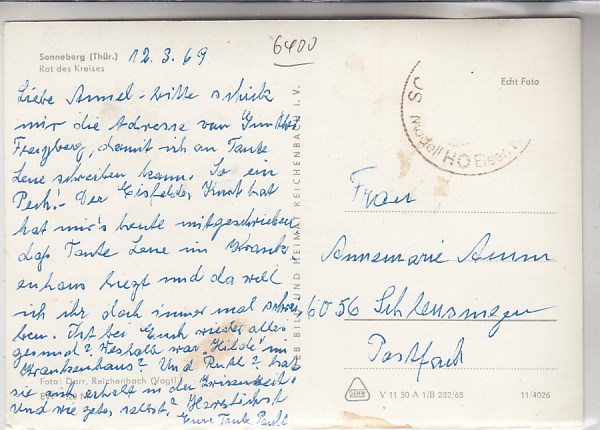 Sonneberg (Thür.)
Rat des Kreises
12.3.69
6400
Echt Foto
Liebe Annel - bitte schick
mir die Adresse von Gunther
damit ich an Tante
Lene schreiben kann. So ein
Pech! - Der Eisfelder Knut hat
hat mir's heute mitgeschrieben,
daß Tante Lene im Kranken
enhaus liegt und da will
ich ihr doch immer mal schrei
ben. Ist bei Euch wieder alles
gesund? Weshalb war "Hilde" im
Krankenhaus? Und Ruth? hat
sie sich erholt in der Zwischenzeit?
Und wie gehts, selbst? Herzlichst
Eure Tante Paula
Foto: Darr, Reichenbach (Vogtl.)
BILD UND HEIMAT REICHENBACH I. V.
Modell HO Eisen
Frau
Annemarie Amm
6056 Schleusingen
Postfach
V 11 50 A 1/B 232/68
11/4026